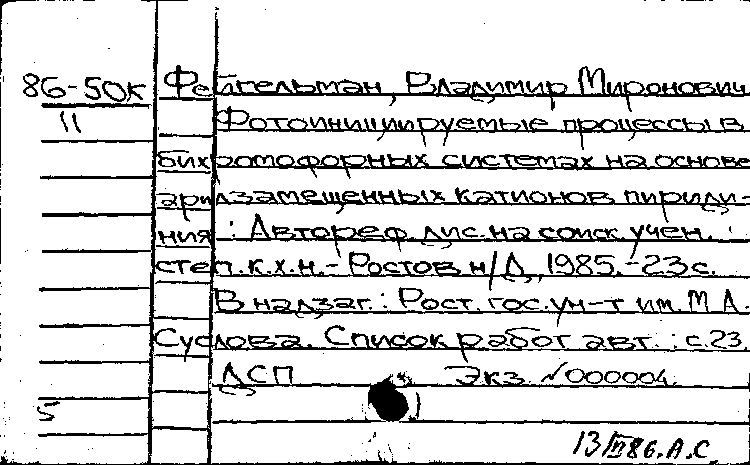 86-50к Фейгельман, Владимир Миронович
11 Фотоинициируемые процессы в
бихромофорных системах на основе
арилзамещенных катионов пириди-
ния : Автореф. дис. на соиск. учен.
степ. к.х.н. - Ростов н/Д, 1985. - 23 с.
В надзаг.: Рост. гос. ун-т им. М.А.
Суслова. Список работ авт.: с. 23.
ДСП Экз. №000004.
5
13/III 86. А.С.